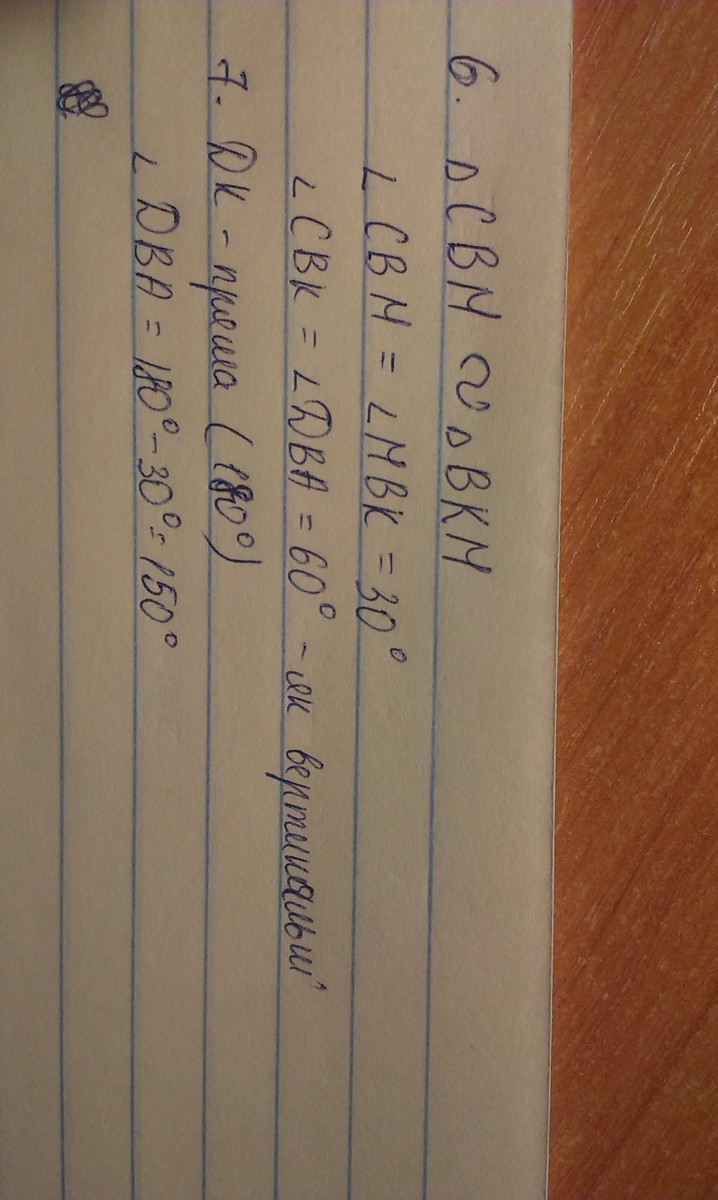 6. ΔCBM ∾ ΔBKM
∠CBM = ∠MBK = 30°
∠CBK = ∠DBA = 60° - як вертикальні
7. DK - пряма (180°)
∠DBA = 180° - 30° = 150°